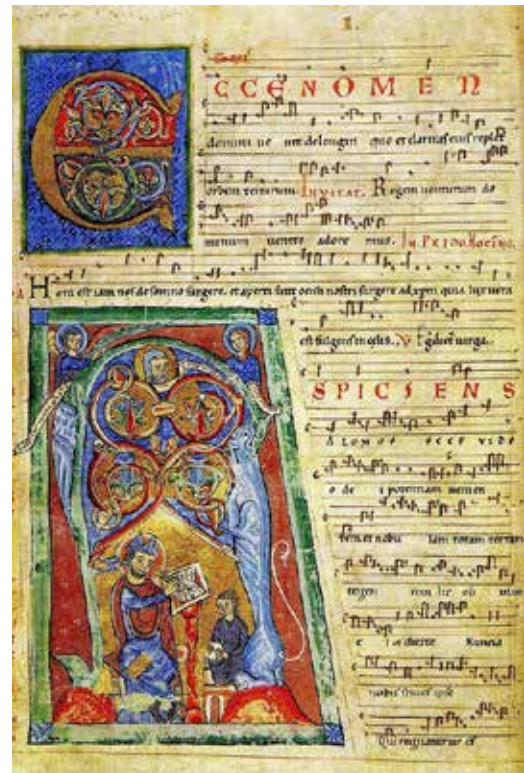 I.
CCENOMEN
domini ue nit delongin quo et claritas eius replet
orbem terrarum. INVITAT. Regem uenturum do
minum uenite adore mus.
Hora est iam nos de somno surgere. et aperti sunt oculi nostri surgere ad xpm quia lux uera
est fulgens in celis. uirga.
SPICIENS
A LONGE ECCE VIDE
o de i potentiam uenien
tem et nebu lam totam terram
tegen tem Ite ob uiam
e i et dicite Nuncia
nobis si tu es ipse
Qui regnaturus es